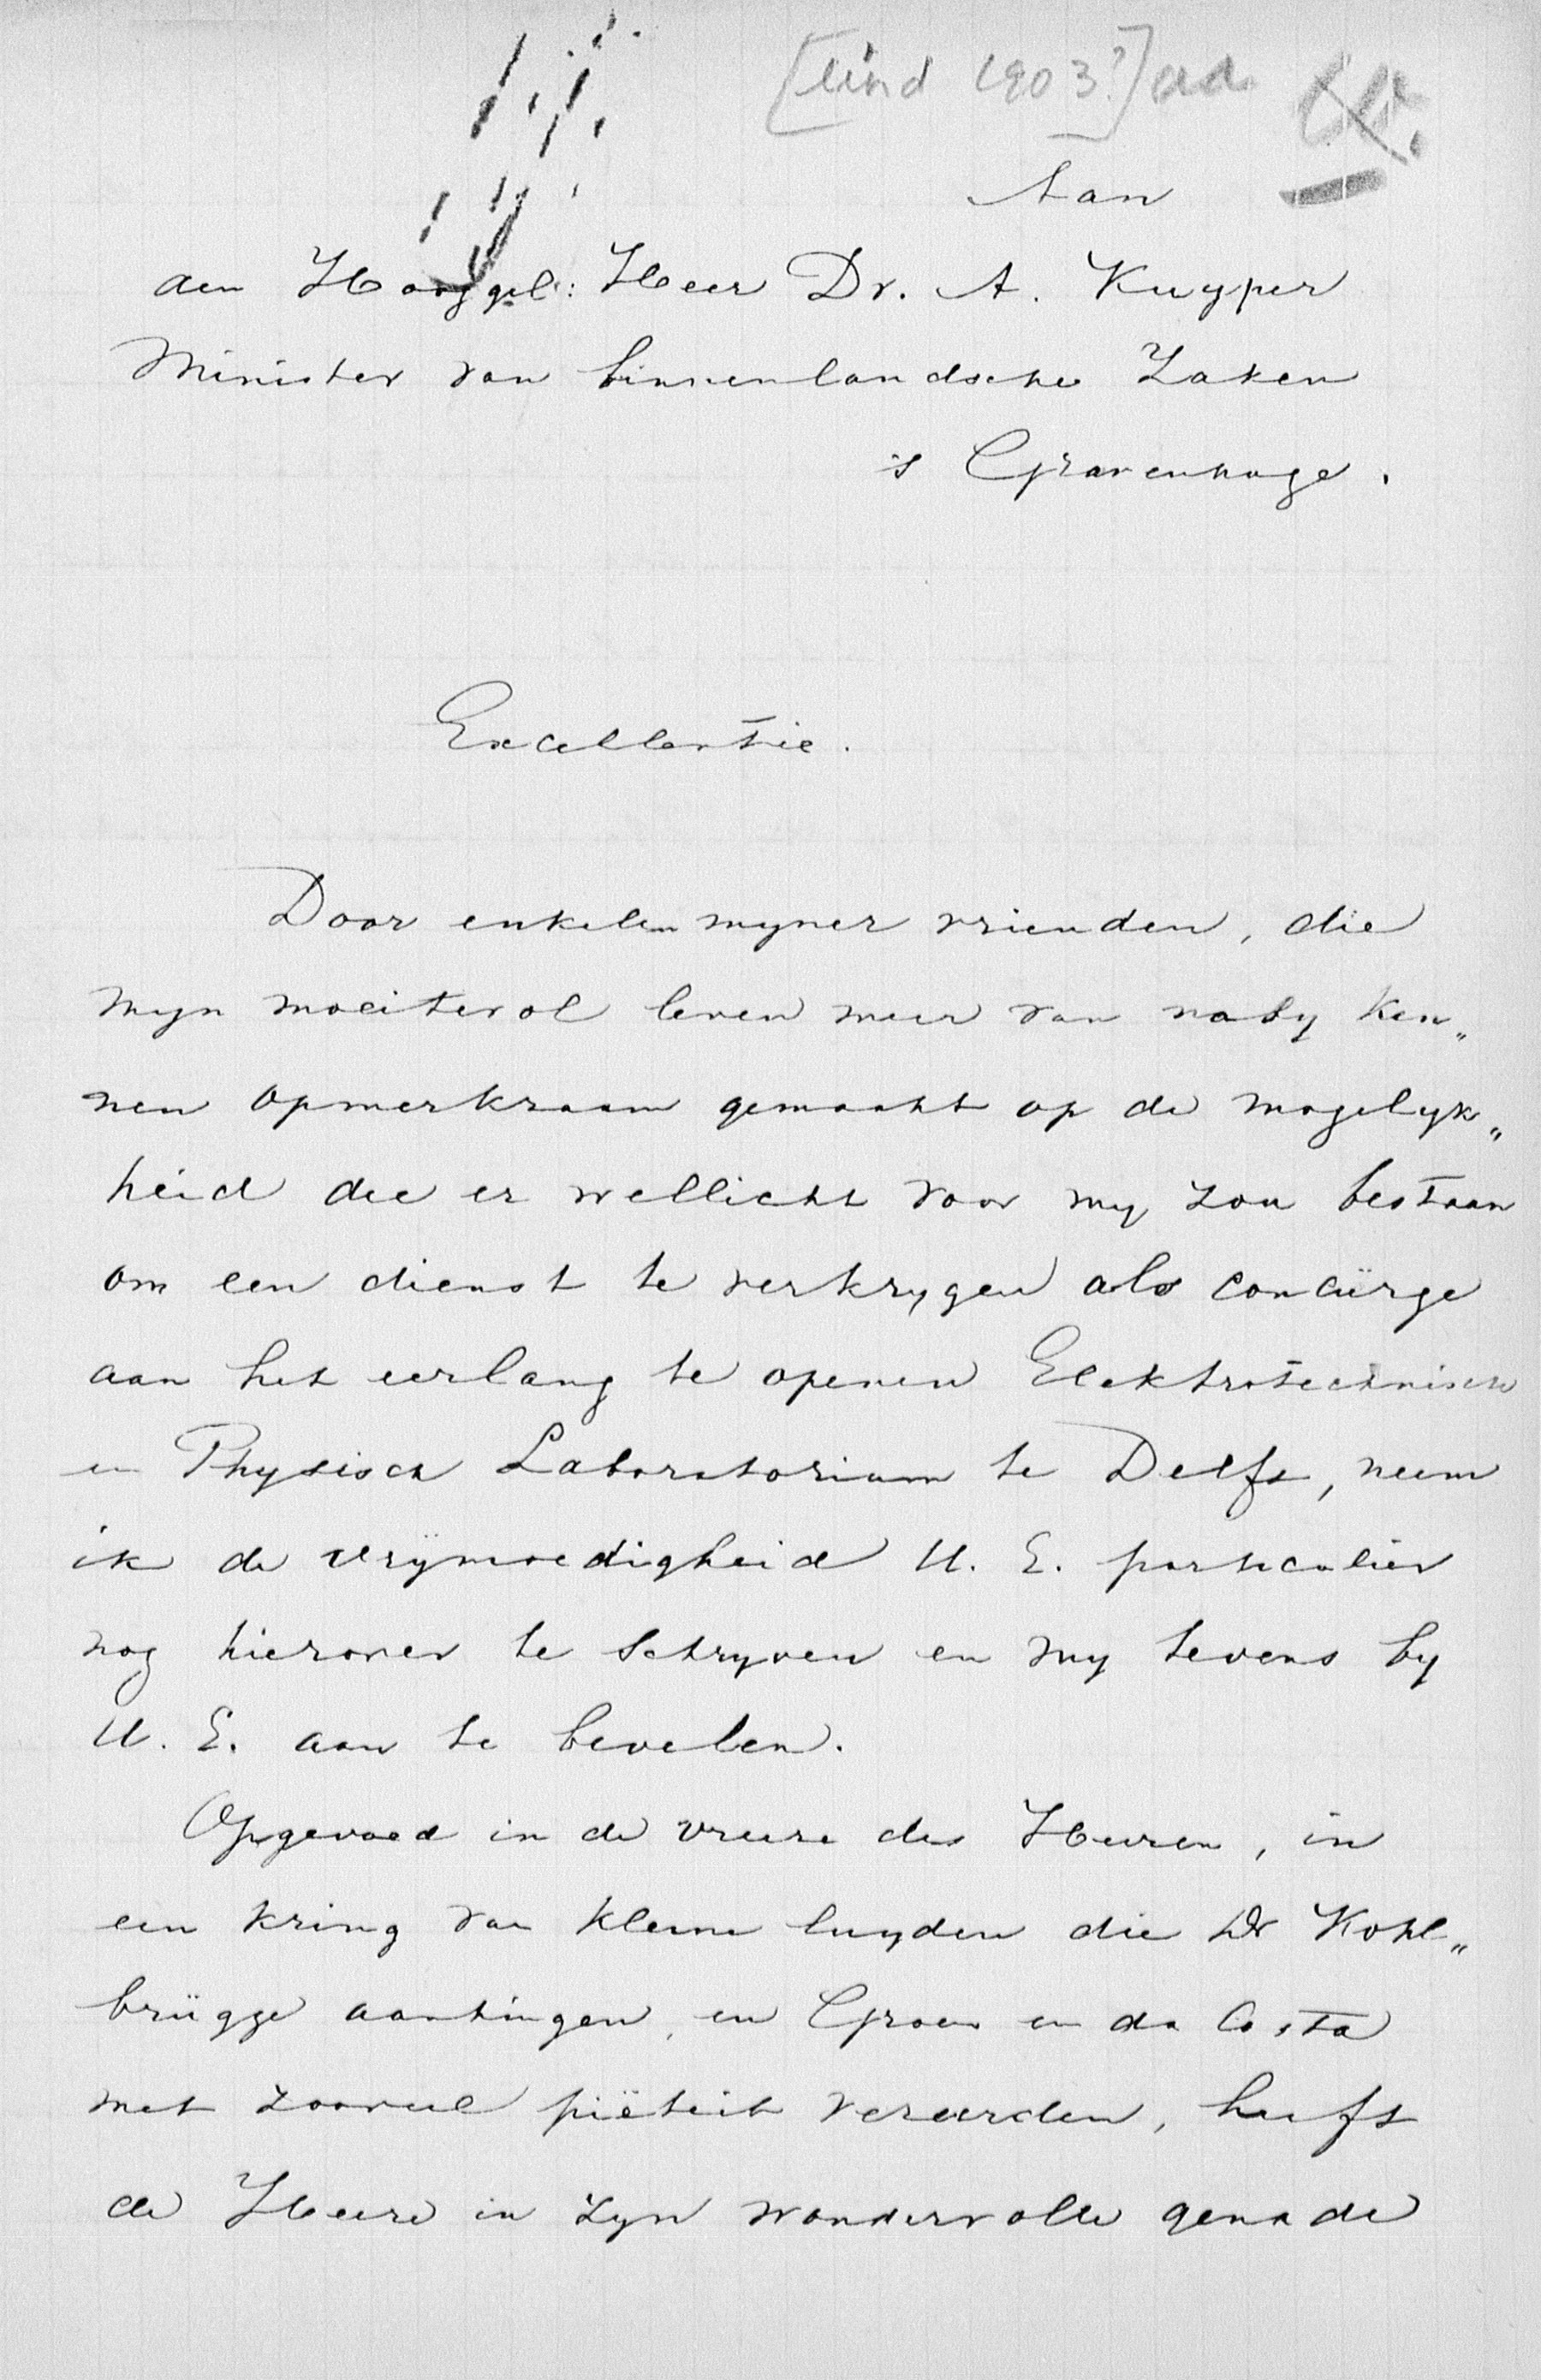 [eind 1903?] ad.
Aan
den Hooggel: Heer Dr. A. Kuyper
Minister van binnenlandsche Zaken
's Gravenhage.
Excellentie.
Door enkelen myner vrienden, die
myn moeitevol leven meer van naby ken„
nen opmerkzaam gemaakt op de mogelyk„
heid die er wellicht voor my zou bestaan
om een dienst te verkrygen als concierge
aan het eerlang te openen Elektrotechnisch
en Physisch Laboratorium te Delft, neem
ik de vrijmoedigheid U. E. particulier
nog hierover te schryven en my tevens by
U. E. aan te bevelen.
Opgevoed in de vreeze des Heeren, in
een kring van kleine luyden die Dr Kohl„
brügge aanhingen, en Groen en da Costa
met zooveel piëteit vereerden, heeft
de Heere in zyn wondervolle genade